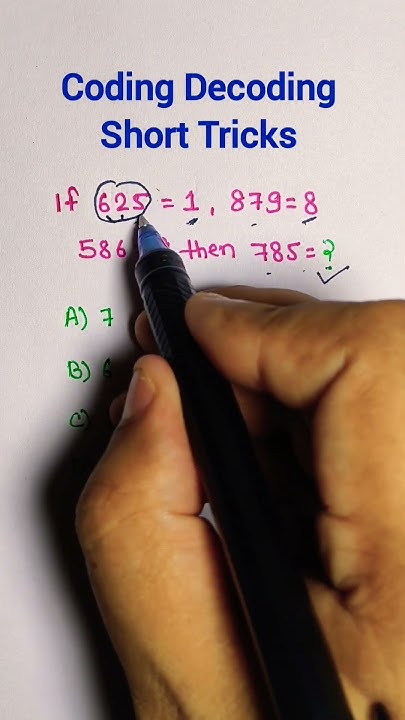 Coding Decoding
Short Tricks
If 625 = 1, 879 = 8
586 then 785 = ?
A) 7
B) 6
C)